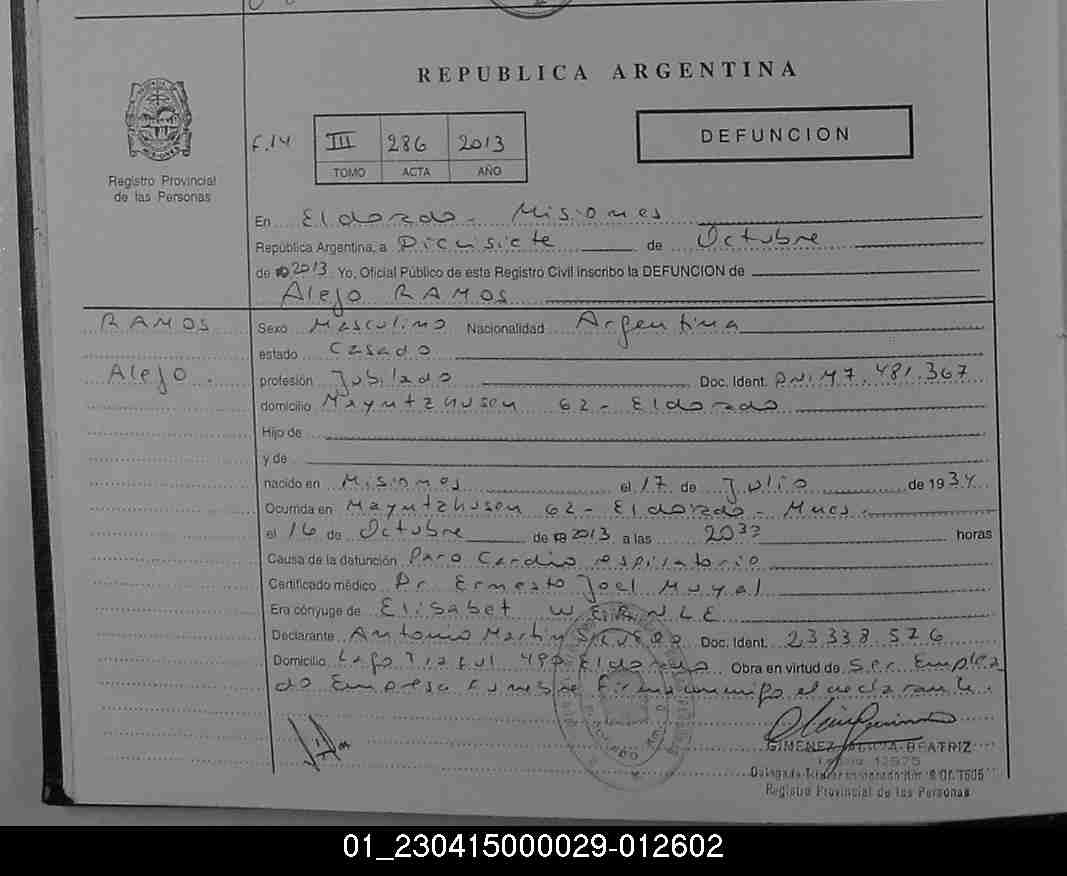 REPUBLICA ARGENTINA
F.14 III 286 2013
TOMO ACTA AÑO
DEFUNCION
Registro Provincial
de las Personas
En Eldorado - Misiones
República Argentina, a Diecisiete de Octubre
de 2013 Yo, Oficial Público de este Registro Civil inscribo la DEFUNCION de
Alejo RAMOS
RAMOS
Alejo.
Sexo Masculino Nacionalidad Argentina
estado Casado
profesión Jubilado Doc. Ident. DNI M7.481.367
domicilio 62 - Eldorado
Hijo de
y de
nacido en Misiones el 17 de Julio de 1934
Ocurrida en 62 - Eldorado - Mnes.
el 16 de Octubre de 2013 a las 20 horas
Causa de la defunción Paro Cardio respiratorio
Certificado médico Dr. Ernesto Joel
Era cónyuge de Elisabet
Declarante Antonio Doc. Ident. 23338.576
Domicilio Lago Eldorado Obra en virtud de Ser Emplea
do Empresa Funebre Firma conmigo el declarante.
GIMENEZ ALICIA BEATRIZ
Registro Provincial de las Personas
01_230415000029-012602